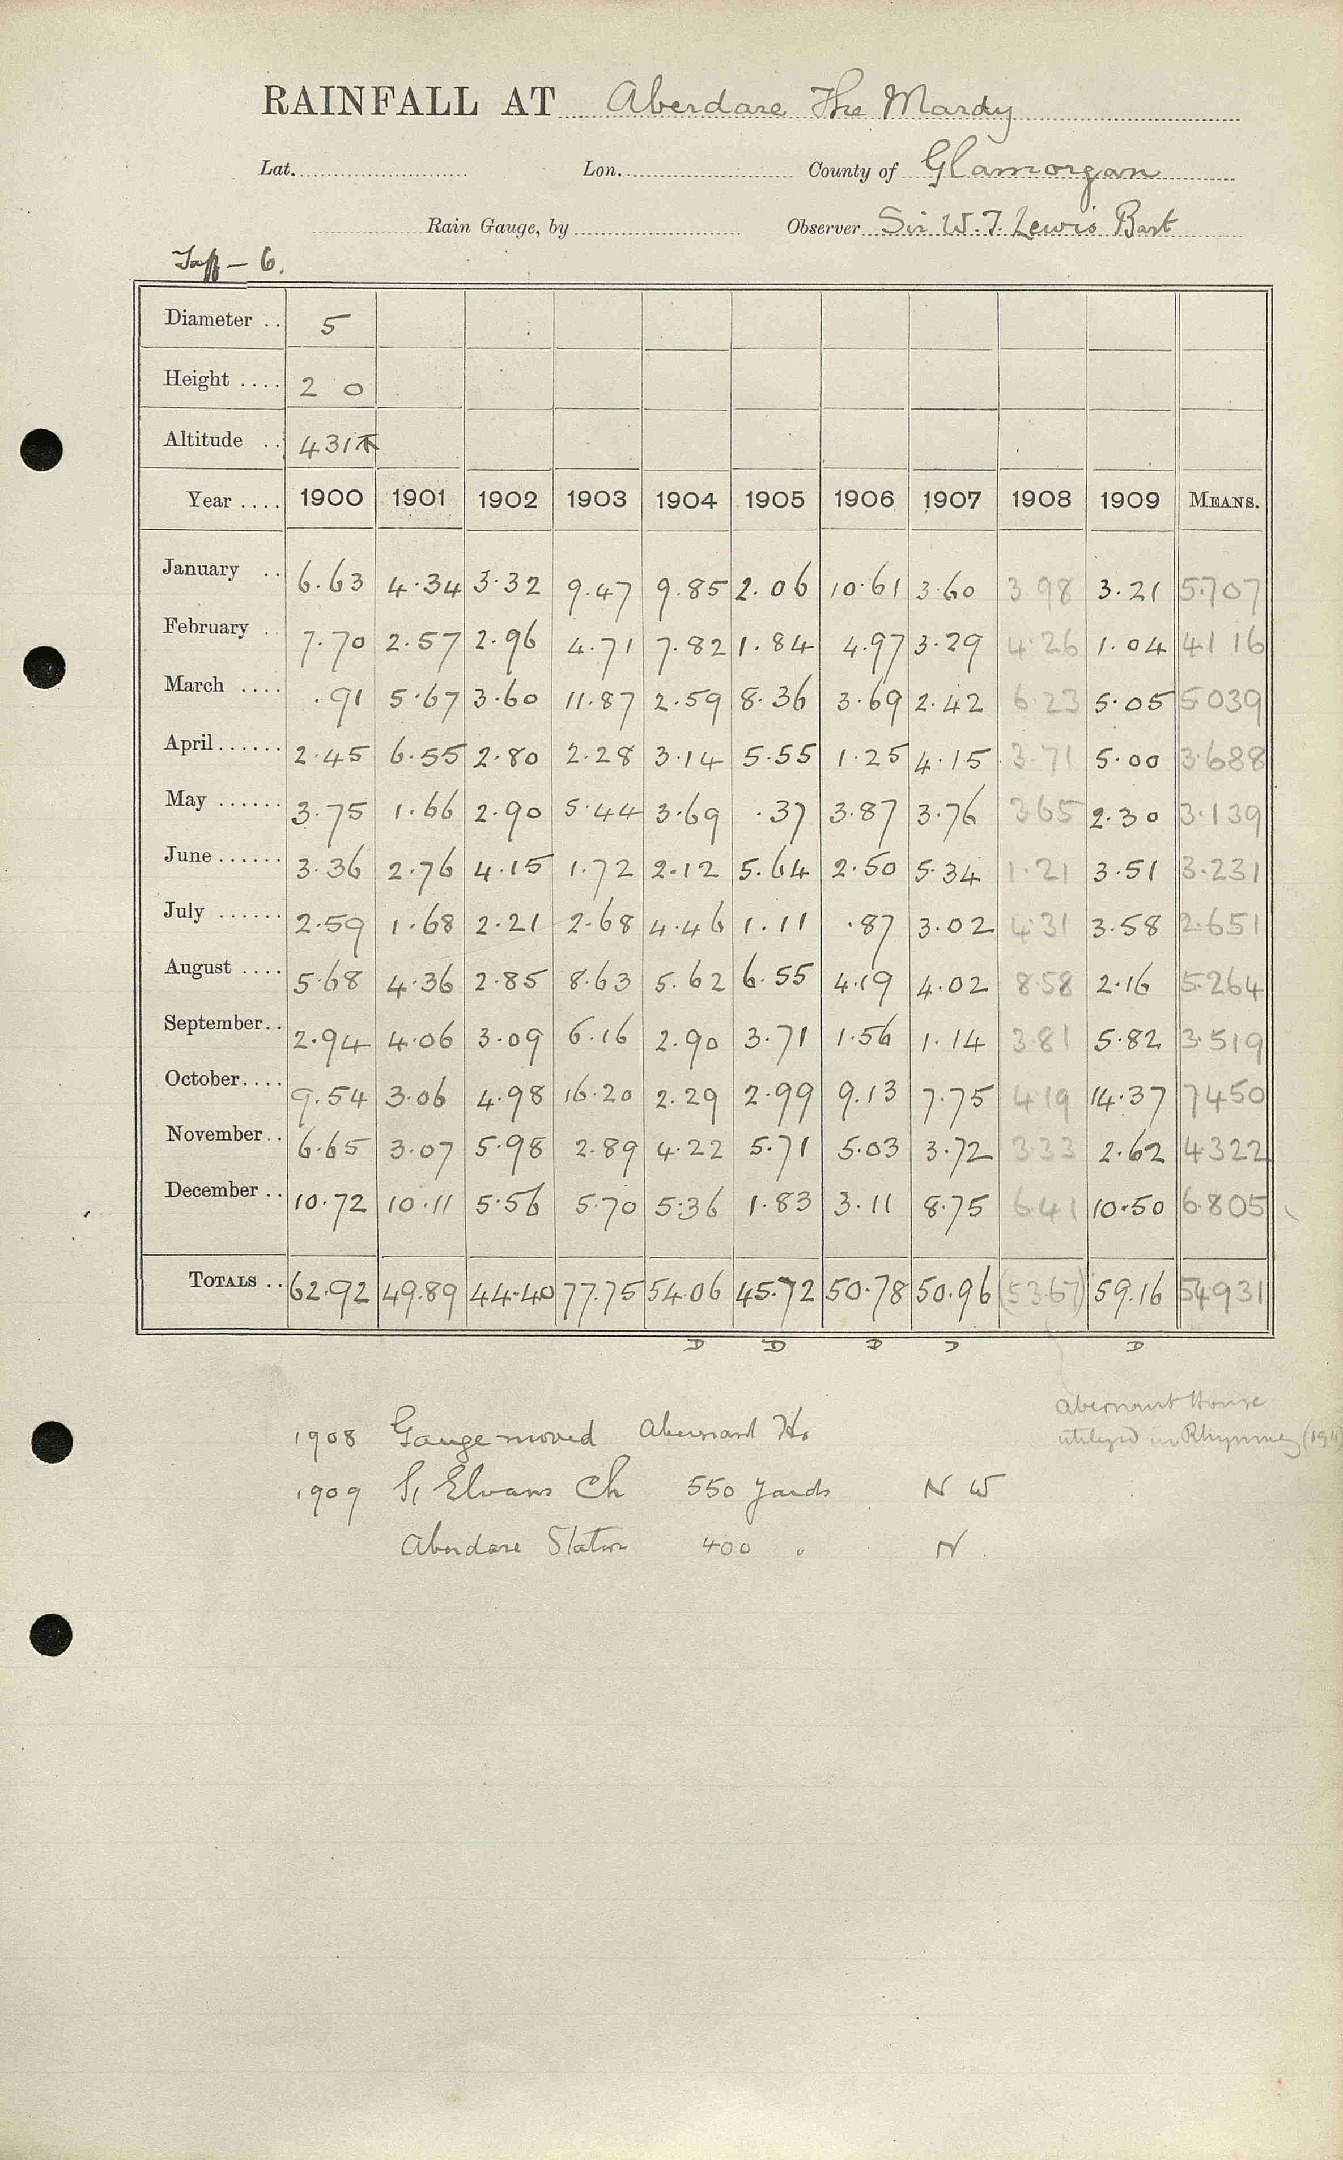 RAINFALL AT Aberdare The Mardy
Lat. Lon. County of Glamorgan
Rain Gauge, by Observer Sir W. T. Lewis Bart
Taff – 6.
Diameter .. 5
Height .... 2 0
Altitude .. 431
Year .... 1900 1901 1902 1903 1904 1905 1906 1907 1908 1909 MEANS.
January .. 6.63 4.34 3.32 9.47 9.85 2.06 10.61 3.60 3.98 3.21 5.707
February .. 7.70 2.57 2.96 4.71 7.82 1.84 4.97 3.29 4.26 1.04 4.116
March .... .91 5.67 3.60 11.87 2.59 8.36 3.69 2.42 6.23 5.05 5.039
April...... 2.45 6.55 2.80 2.28 3.14 5.55 1.25 4.15 3.71 5.00 3.688
May ...... 3.75 1.66 2.90 5.44 3.69 .37 3.87 3.76 3.65 2.30 3.139
June...... 3.36 2.76 4.15 1.72 2.12 5.64 2.50 5.34 1.21 3.51 3.231
July ...... 2.59 1.68 2.21 2.68 4.46 1.11 .87 3.02 4.31 3.58 2.651
August .... 5.68 4.36 2.85 8.63 5.62 6.55 4.19 4.02 8.58 2.16 5.264
September.. 2.94 4.06 3.09 6.16 2.90 3.71 1.56 1.14 3.81 5.82 3.519
October.... 9.54 3.06 4.98 16.20 2.29 2.99 9.13 7.75 4.19 14.37 7.450
November.. 6.65 3.07 5.98 2.89 4.22 5.71 5.03 3.72 3.33 2.62 4.322
December .. 10.72 10.11 5.56 5.70 5.36 1.83 3.11 8.75 6.41 10.50 6.805
TOTALS .. 62.92 49.89 44.40 77.75 54.06 45.72 50.78 50.96 (53.67) 59.16 54.931
D D D D D
Abernant House
utilized in Rhymney
1908 Gauge moved Abernant Ho
1909 St Elvans Ch 550 yards N W
Aberdare Station 400 " N